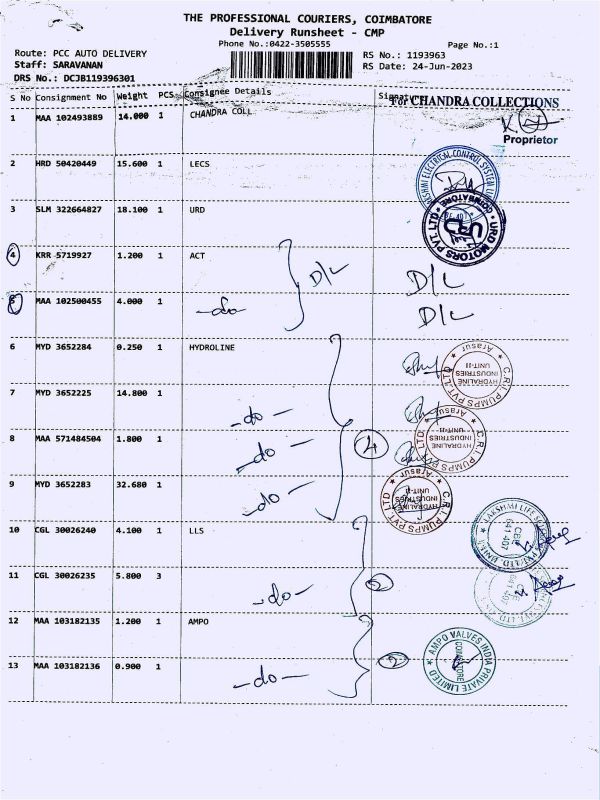 THE PROFESSIONAL COURIERS, COIMBATORE
Delivery Runsheet - CMP
Phone No.:0422-3505555
Page No.:1
Route: PCC AUTO DELIVERY
RS No.: 1193963
Staff: SARAVANAN
RS Date: 24-Jun-2023
DRS No.: DCJB119396301
S No Consignment No Weight PCS Consignee Details Signature
For CHANDRA COLLECTIONS
1 MAA 102493889 14.000 1 CHANDRA COLL
Proprietor
2 HRD 50420449 15.600 1 LECS
LAKSHMI ELECTRICAL CONTROL SYSTEM
3 SLM 322664827 18.100 1 URD
URD MOTORS PVT LTD * COIMBATORE *
URD
4 KRR 5719927 1.200 1 ACT D/L D/L
5 MAA 102500455 4.000 1 -do- D/L
6 MYD 3652284 0.250 1 HYDROLINE
C.R.I. PUMPS PVT LTD * Arasur *
HYDRALINE INDUSTRIES UNIT-II
7 MYD 3652225 14.800 1 -do-
C.R.I. PUMPS PVT LTD * Arasur *
HYDRALINE INDUSTRIES UNIT-II
8 MAA 571484504 1.800 1 -do- 4
9 MYD 3652283 32.680 1 -do-
C.R.I. PUMPS PVT LTD * Arasur *
HYDRALINE INDUSTRIES UNIT-II
10 CGL 30026240 4.100 1 LLS
LAKSHMI LIFE
CBE 641 407
11 CGL 30026235 5.800 3 -do- 2
641 407
12 MAA 103182135 1.200 1 AMPO
13 MAA 103182136 0.900 1 -do- 2
AMPO VALVES INDIA PRIVATE LIMITED *
COIMBATORE